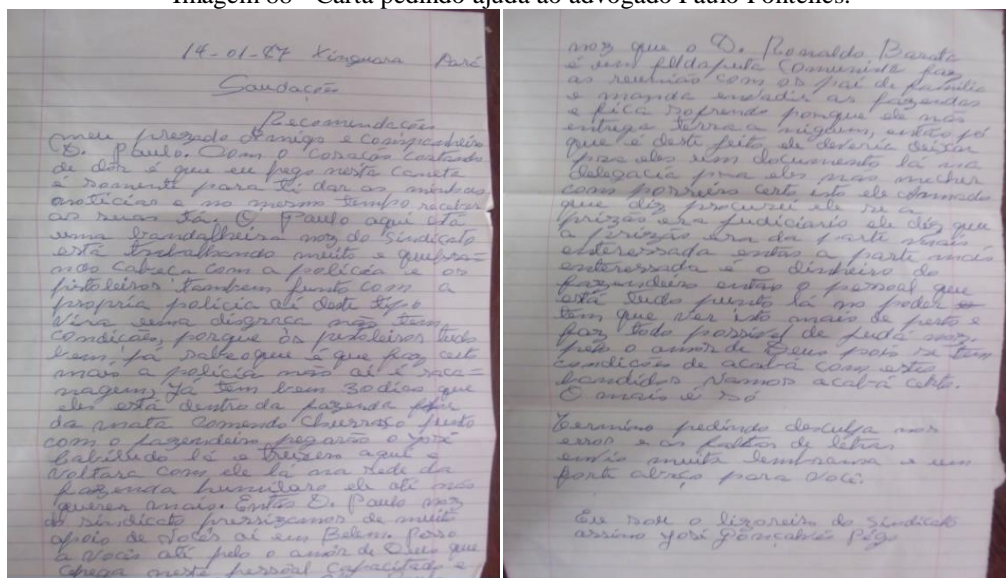 Imagem 88 - Carta pedindo ajuda ao advogado Paulo Fonteles.
14-01-87 Xinguara Pará
Saudação
Recomendações
meu prezado Amigo e companheiro
D. Paulo. Com o coração cortando
de dor é que eu pego nesta caneta
é somente para ti dar as minhas
notícias e no mesmo tempo receber
as suas tá. O Paulo aqui está
uma bandalheira noz do sindicato
está trabalhando muito e quebran
nos cabeça com a polícia e os
pistoleiros tambem junto com a
propria polícia aí deste tipo
vira uma disgraca não tem
condicões, porque os pistoleiros tudo
bem, já sabe o que é que faz certo
mais a polícia não aí é saca=
nagem, já tem bem 30 dias que
eles está dentro da fazenda
da mata comendo churrasco junto
com o fazendeiro pegarão o José
Cabiludo lá e truxero aqui e
voltara com ele lá na sede da
fazenda humilaro ele até não
querer mais. Então D. Paulo noz
do sindicato pressizamos de muito
apoio de vocês aí em Belém. Posso
a vocês até pelo o amôr de Deus que
chega neste pessoal capacitado e
noz que o D. Ronaldo Barata
é um fildaputa comunista faz
as reunião com os pai de família
e manda envadir as fazendas
e fica sofrendo porque ele não
entrega terra a niguem, então já
que é deste jeito, ele deveria deixar
para eles um documento lá na
delegacia pra eles não mecher
com posseiro certo isto ele
que diz procurei ele se a
prizão era judiciario ele diz que
a prizão era da parte mais
enteressada então a parte mais
enteressada é o dinheiro do
fazendeiro então o pessoal que
está tudo junto lá no poder
tem que ver isto mais de perto e
faz todo possivel de judá noz
pelo o amôr de Deus pois se tem
condicões de acabá com estes
bandidos vamos acabá certo.
O mais é só
Termino pedindo desculpa nos
error e as faltas de letras
envio muita lembranca e um
forte abraço para você.
Eu sou o do Sindicato
assino José Gonçalves